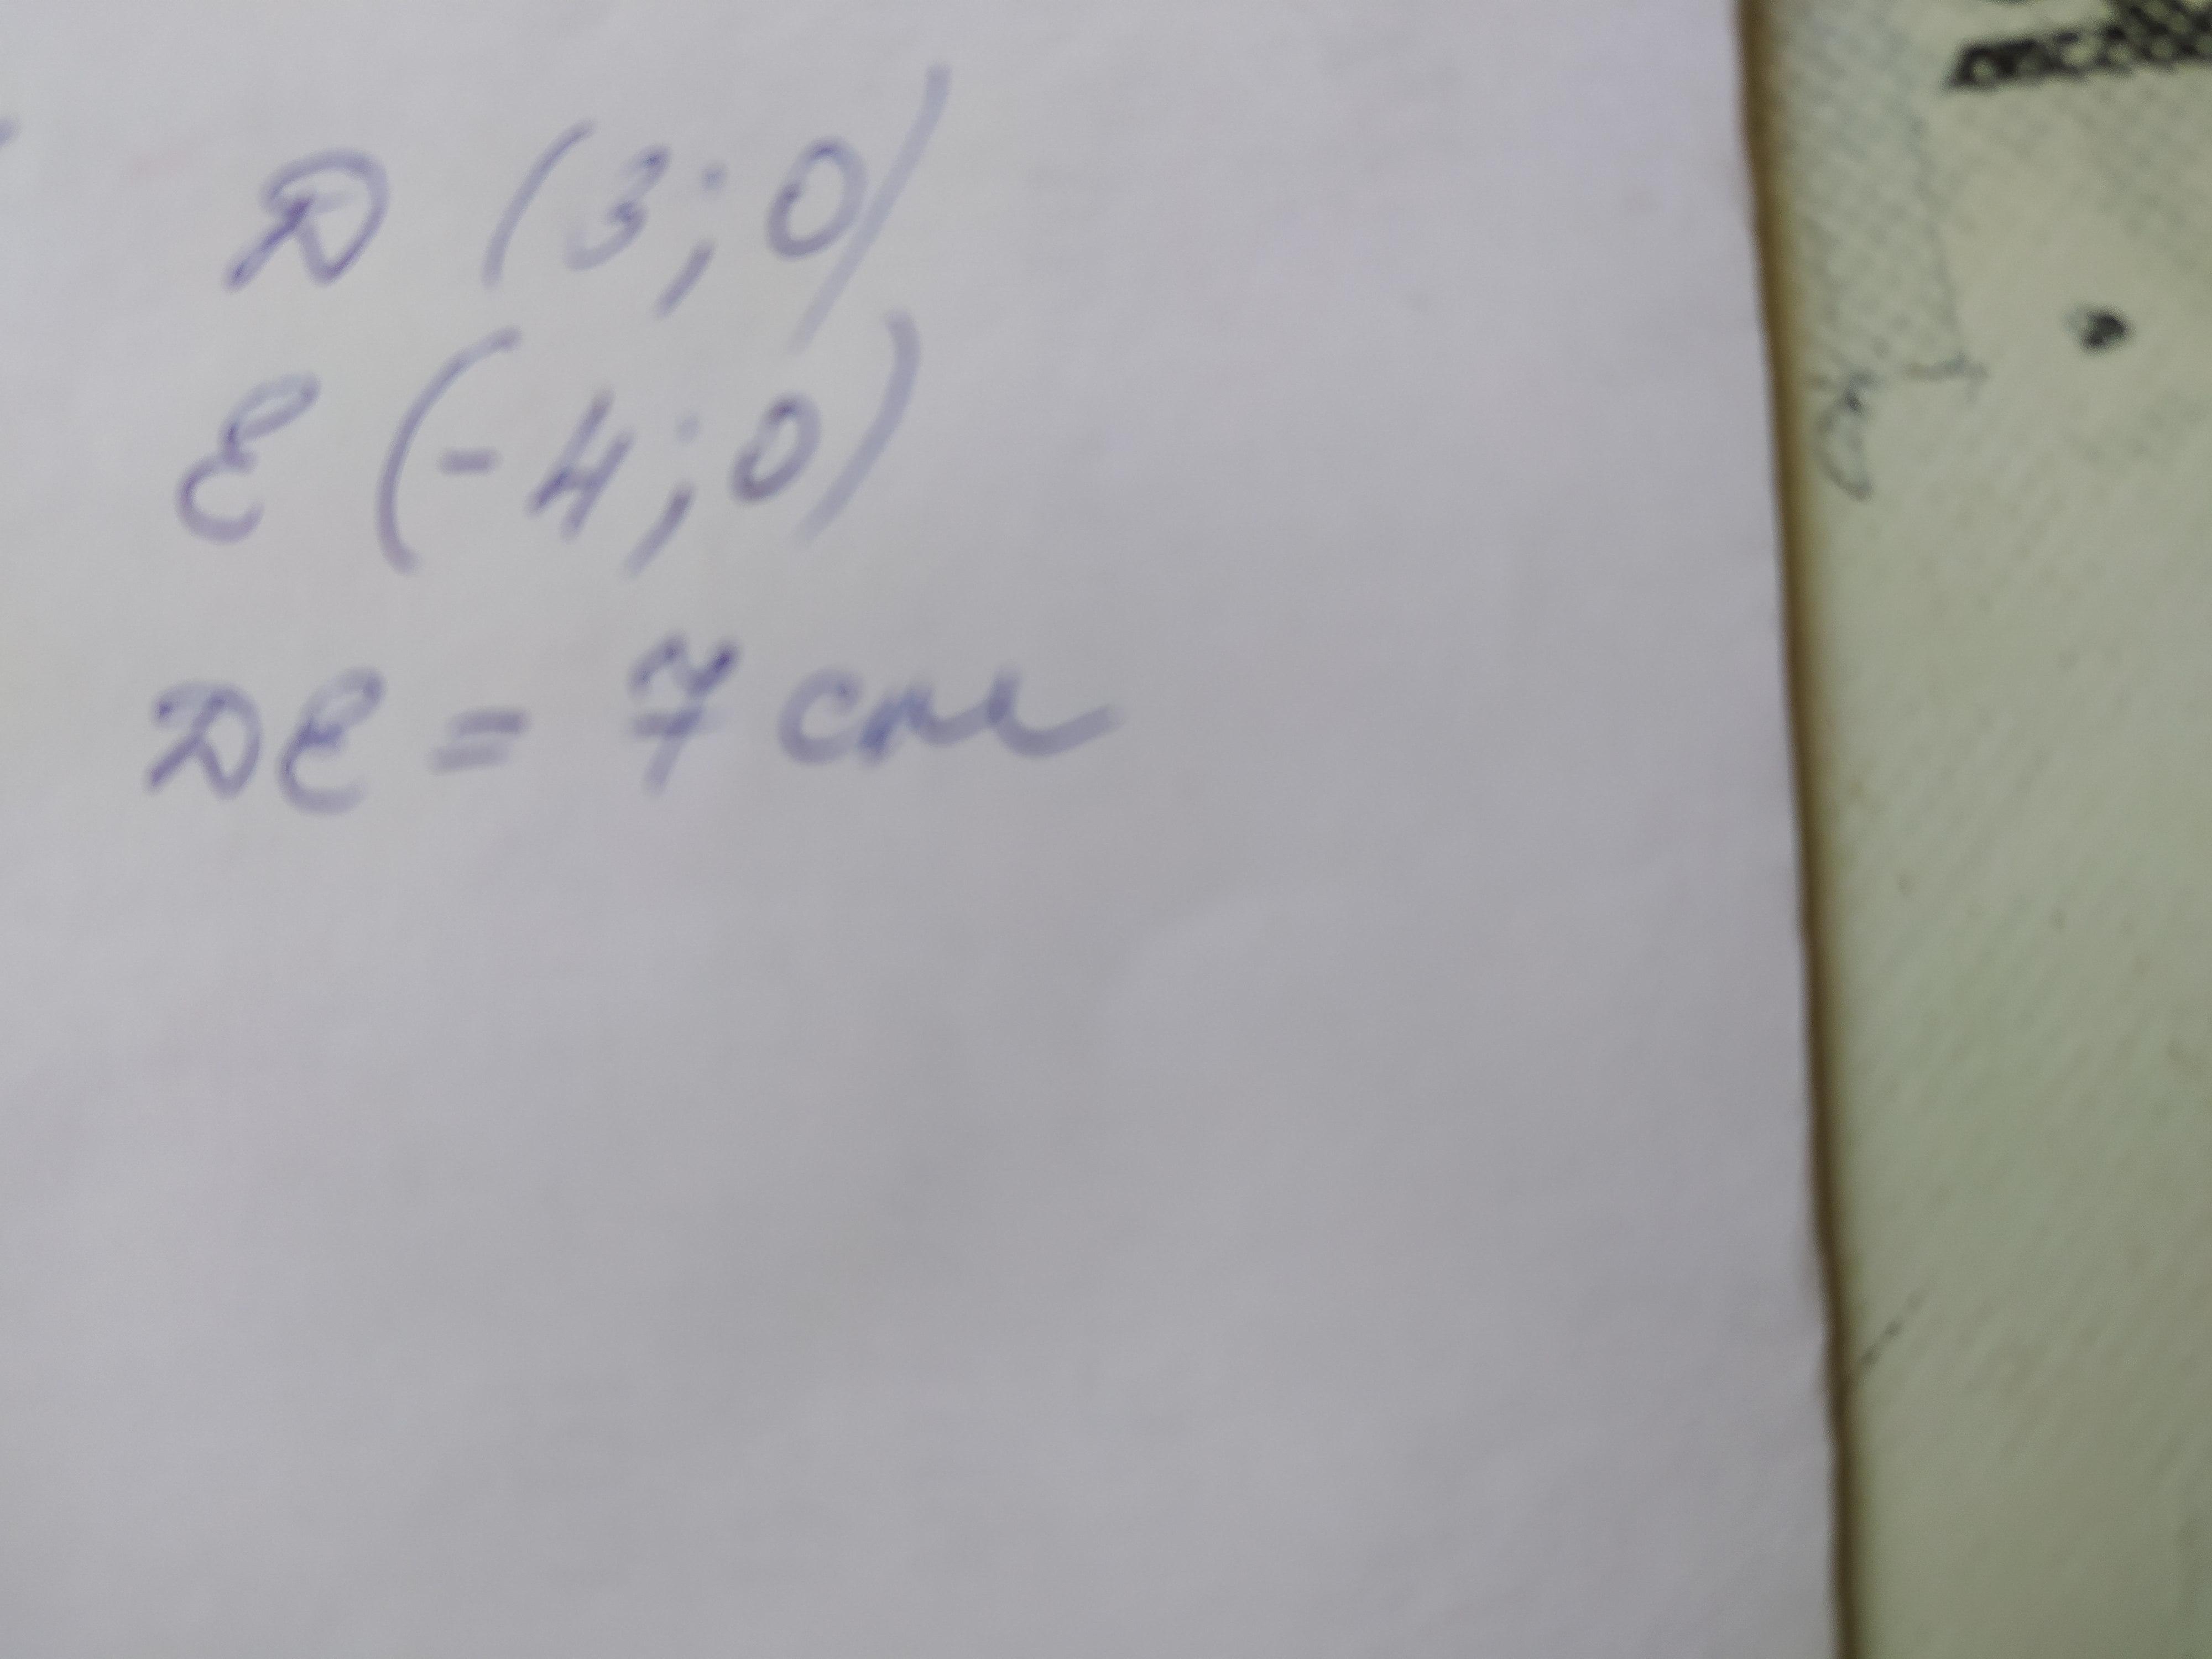 D (3; 0)
E (-4; 0)
DE = 7 см